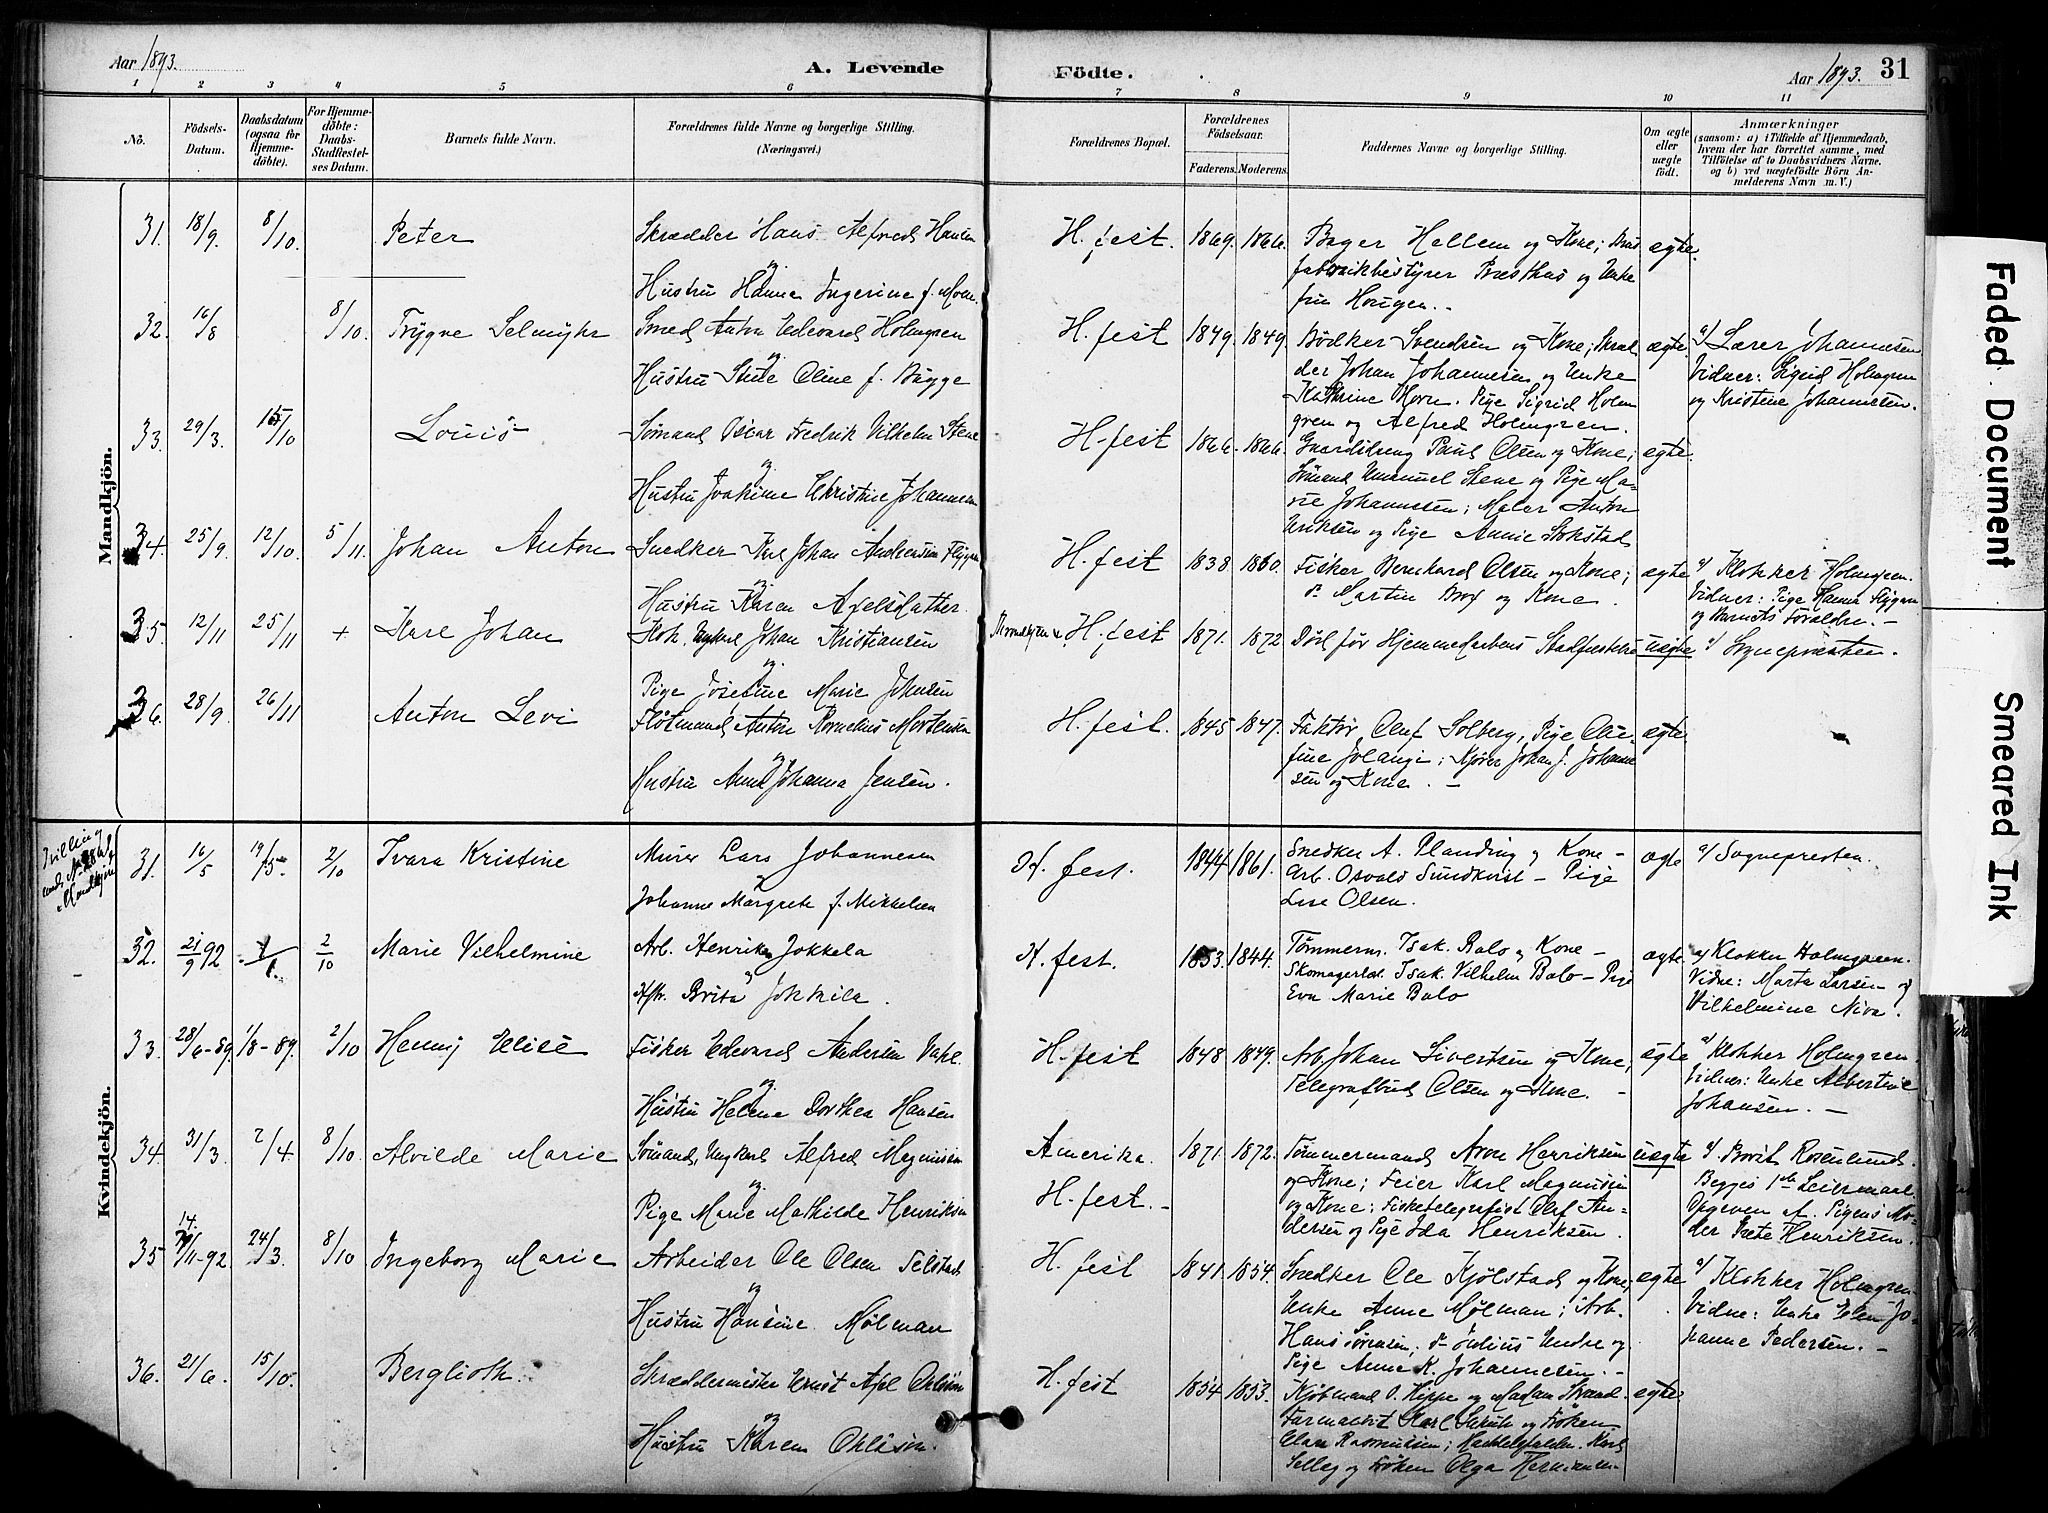 Aar 1893.
A. Levende
Födte.
Aar 1893.
31
1 2 3 4 5 6 7 8 9 10 11
No.
Födsels-
Datum.
Daabsdatum
(ogsaa for
Hjemme-
döbte).
For Hjemme-
döbte:
Daabs-
Stadfæstel-
ses Datum.
Barnets fulde Navn.
Forældrenes fulde Navne og borgerlige Stilling.
(Næringsvei.)
Forældrenes Bopæl.
Forældrenes
Födselsaar.
Faderens. Moderens.
Faddernes Navne og borgerlige Stilling.
Om ægte
eller
uægte
födt.
Anmærkninger
(saasom: a) i Tilfælde af Hjemmedaab,
hvem der har forrettet samme, med
Tilföielse af to Daabsvidners Navne.
og b) ved uægtefödte Börn An-
melderens Navn m. V.)
Mandkjön.
31. 18/9. 8/10. Peter
Skrædder Hans Alfred Hansen
og
Hustru Hanna Ingerine f. Moen.
H. fest. 1869. 1866.
Bager Hellem og Kone;
fabrikbestyrer Præsthus og Enke
fru Hougen.
ægte.
32. 16/8 8/10. Trygve Selmyhr
Smed Anton Edevard Holmgren
og
Hustru Oline f. Bugge
H. fest 1849. 1849.
Bødker Svendsen og Kone; Skræd
der Johan Johannesen og Enke
Kathrine Horn. Pige Sigrid Holm
gren og Alfred Holmgren.
ægte.
a/ Lærer Johannesen
Vidner: Sigrid Holmgren
og Kristine Johannesen.
33. 29/3. 15/10 Louis
Sømand Oscar Fredrik Vilhelm Stene
og
Hustru Joakime Christine Johannesen
H. fest 1866. 1866.
Gaardsdreng Paul Olsen og Kone;
Sømand Emanuel Stene og Pige Ma-
rie Johannesen; Maler Anton
Eriksen og Pige Annie Stokstad
ægte.
34 25/9. 12/10. 5/11. Johan Anton
Snedker Karl Johan Andersen Flygen
og
Hustru Karen Axelsdatter.
H. fest 1838 1860.
Fisker Bernhard Olsen og Kone;
do Martin Brox og Kone.
ægte
a/ Klokker Holmgren.
Vidner: Pige Hanna Flygen
og Barnets Forældre. -
35. 12/11 25/11 + Karl Johan
Ungkarl Johan Kristiansen
og
Pige Josefine Marie Johnsen
H. fest 1871. 1872
Død før Hjemmedaabens Stadfæstelse
uægte
a/ Sognepresten.
36. 28/9. 26/11 Anton Levi
Flötmand Anton Kornelius Mortensen
og
Hustru Anna Johanna Jensen.
H. fest. 1845 1847.
Faktor Oluf Solberg, Pige Olu-
fine Jolangi; Kjører Johan J. Johanne
sen og Kone. -
ægte.
Kvindekjön.
Tvilling
31. 16/5 19/5 2/10 Tvara Kristine
Murer Lars Johannesen
Johanne Margrete f. Mikkelsen
H. fest. 1844 1861.
Snedker A. Planding og Kone -
Arb. Osvald Sundkvist - Pige
Lise Olsen.
ægte
a/ Sognepresten.
32. 21/9 92 1/1. 2/10 Marie Vilhelmine
Arb. Henrik Jokkela
og
Hstr. Brita Jokkila.
H. fest. 1853. 1844.
Tømmerm. Isak. Balo og Kone -
Skomagerlær. Isak Vilhelm Balo - Pige
Eva Marie Balo
ægte
a/ Klokker Holmgreen.
Vidne: Marta Larsen og
Vilhelmine Niva.
33. 28/6-89. 1/8-89. 2/10 Henny Elise
Fisker Edevard Andersen
og
Hustru Helene Dorthea Hansen
H. fest 1848 1849.
Arb. Johan Sivertsen og Kone,
Telegrafbud Olsen og Kone. -
ægte
a/ Klokker Holmgren
Vidner: Enke Albertine
Johansen. -
34. 31/3. 2/4. 8/10. Alvilde Marie
Sømand, Ungkarl Alfred Magnusen
og
Pige Marie Mathilde Henriksen
Amerika.
H. fest. -
1871. 1872.
Tømmermand Aron Henriksen
og Kone; Feier Karl Magnusen
og Kone; Fisketelegrafist Olaf An-
dersen og Pige Ida Henriksen.
uægte
a/ Borit Rosenlund.
Begges 1ste Leiermaal.
Opgiven af Pigens Mo-
der Henriksen.
35 14/11-92. 24/3. 8/10 Ingeborg Marie
Arbeider Ole Olsen Telstad
og
Hustru Hansine Mølman
H. fest 1841. 1854.
Snedker Ole Kjølstad og Kone,
Enke Anne Mølman; Arb.
Hans Sørensen; og
Pige Anne K. Johannesen. -
ægte
a/ Klokker Holmgren
Vidne: Enke Elen Jo-
hanne Pedersen. -
36. 21/6. 15/10. Berglioth.
Skræddermester Ernst Axel Ohlsson
og
Hustru Karen Ohlsson.
H. fest 1854 1853.
Kjøbmand O. Hippe og Madam Strand.
Farmaceut Karl og Frøken
Rasmussen; Karl
Selleg og Frøken Olga Hermansen.
ægte.
Faded Document
Smeared Ink